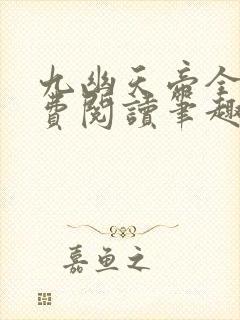 九幽天帝全
費閱讀筆趣
嘉魚之